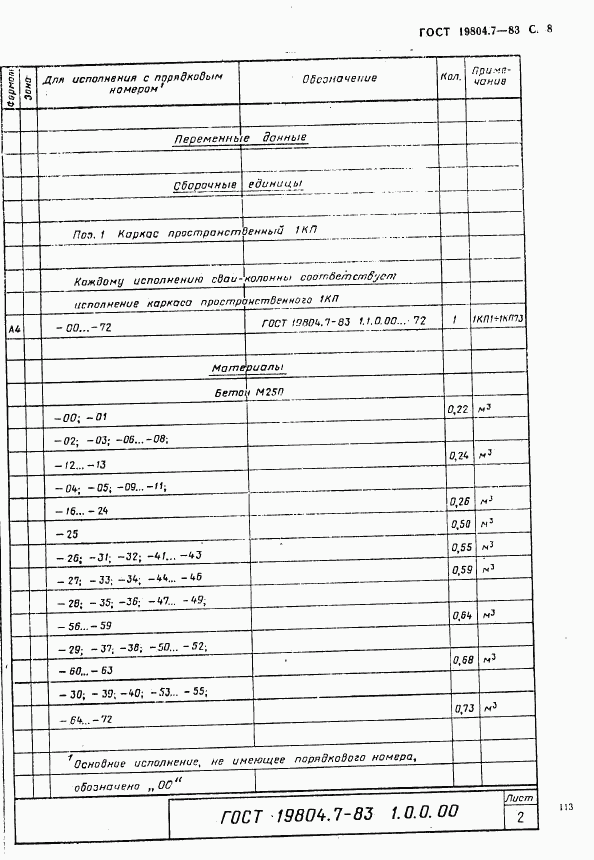 ГОСТ 19804.7—83 С. 8
Формат Зона Для исполнения с порядковым номером¹ Обозначение Кол. Примечание
Переменные данные
Сборочные единицы
Поз. 1 Каркас пространственный 1КП
Каждому исполнению сваи-колонны соответствует
исполнение каркаса пространственного 1КП
А4 −00...−72 ГОСТ 19804.7-83 1.1.0.00...-72 1 1КП1÷1КП73
Материалы
Бетон М250
−00; −01 0,22 м³
−02; −03; −06...−08;
−12...−13 0,24 м³
−04; −05; −09...−11;
−16...−24 0,26 м³
−25 0,50 м³
−26; −31; −32; −41...−43 0,55 м³
−27; −33; −34; −44...−46 0,59 м³
−28; −35; −36; −47...−49;
−56...−59 0,64 м³
−29; −37; −38; −50...−52;
−60...−63 0,68 м³
−30; −39; −40; −53...−55;
−64...−72 0,73 м³
¹Основное исполнение, не имеющее порядкового номера,
обозначено „00“
ГОСТ 19804.7-83 1.0.0.00 Лист 2
113